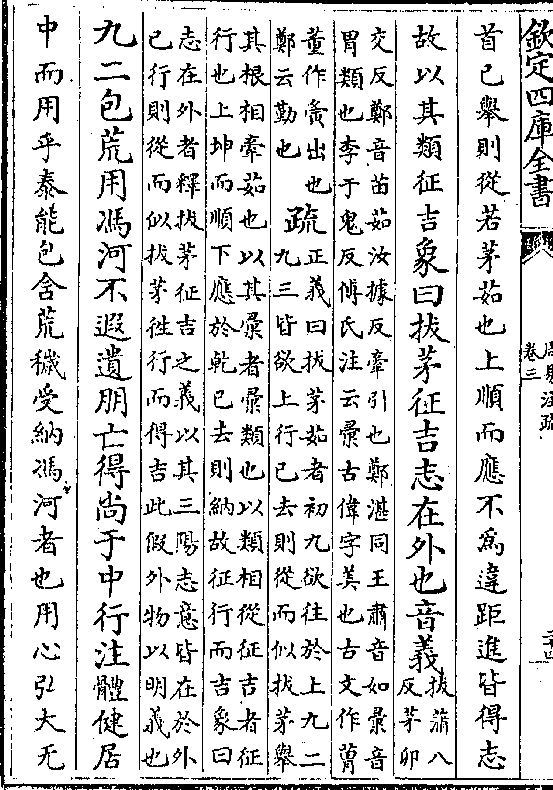 欽定四庫全書
周易注疏
卷三
首已舉則從若茅茹也上順而應不為違距進皆得志
故以其類征吉象曰拔茅征吉志在外也音義拔蒲八
反茅卯
交反鄭音苗茹汝據反牽引也鄭湛同王肅音如彚音
胃類也李于鬼反傅氏注云彚古偉字美也古文作𦳢
董作夤出也
鄭云勤也疏正義曰拔茅茹者初九欲往於上九二
九三皆欲上行已去則從而似拔茅舉
其根相牽茹也以其彚者彚類也以類相從征吉者征
行也上坤而順下應於乾已去則納故征行而吉象曰
志在外者釋拔茅征吉之義以其三陽志意皆在於外
已行則從而似拔茅徃行而得吉此假外物以明義也
九二包荒用馮河不遐遺朋亡得尚于中行注體健居
中而用乎泰能包含荒穢受納馮河者也用心弘大无